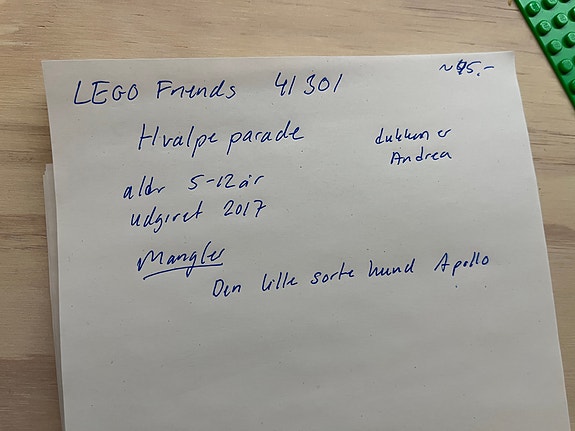 LEGO Friends 41301
~45.-
Hvalpe parade
dukken er
Andrea
aldr 5-12 år
udgivet 2017
Mangler
Den lille sorte hund Apollo